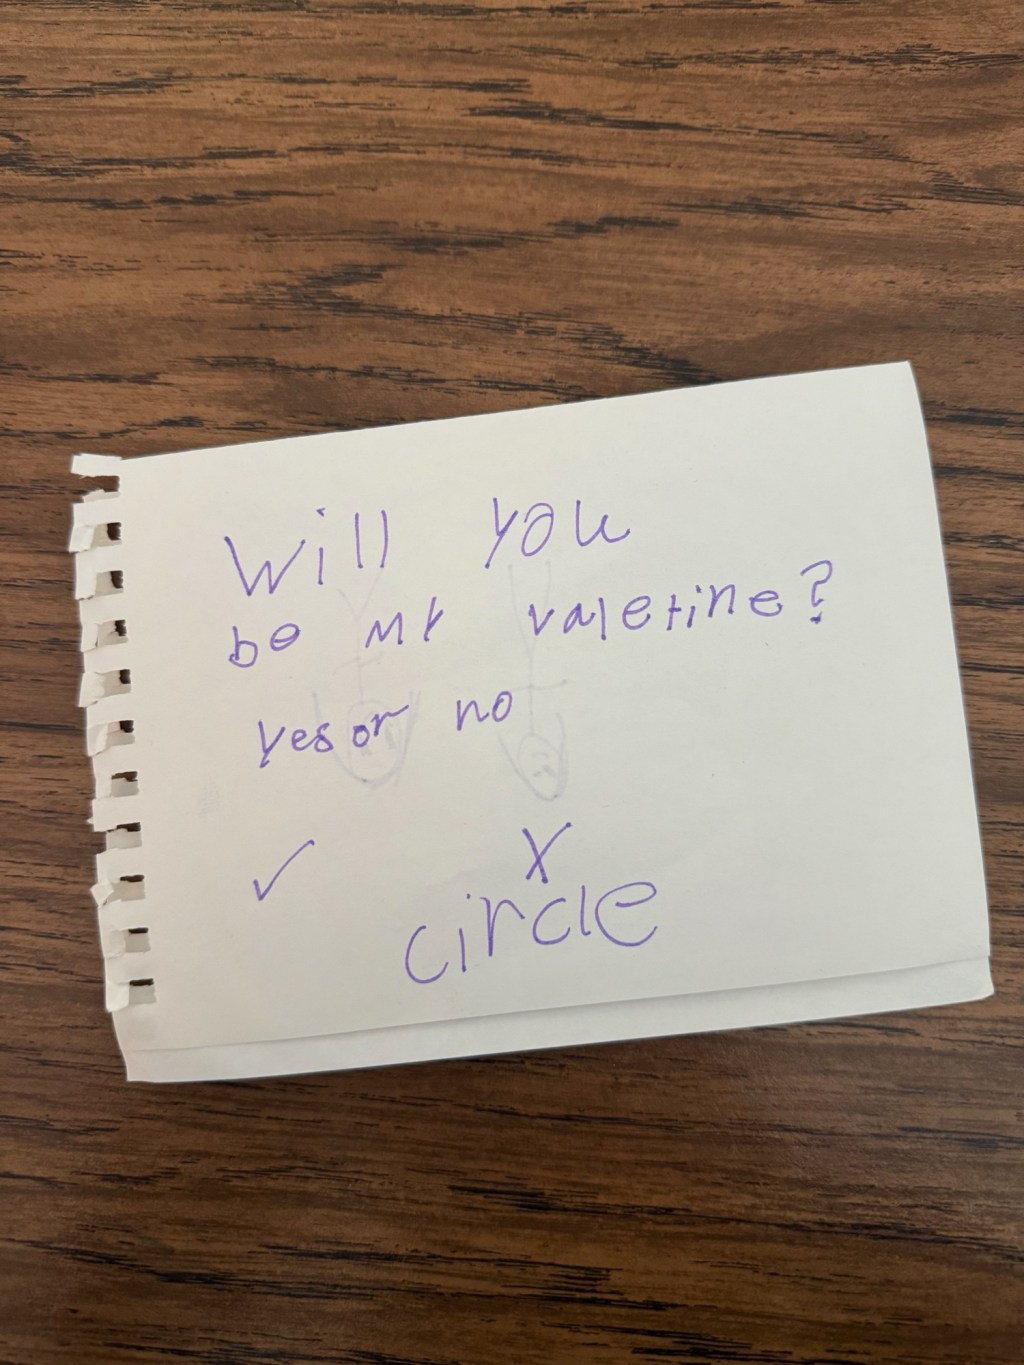 Will you
be my valetine?
yes or no
✓ X
circle